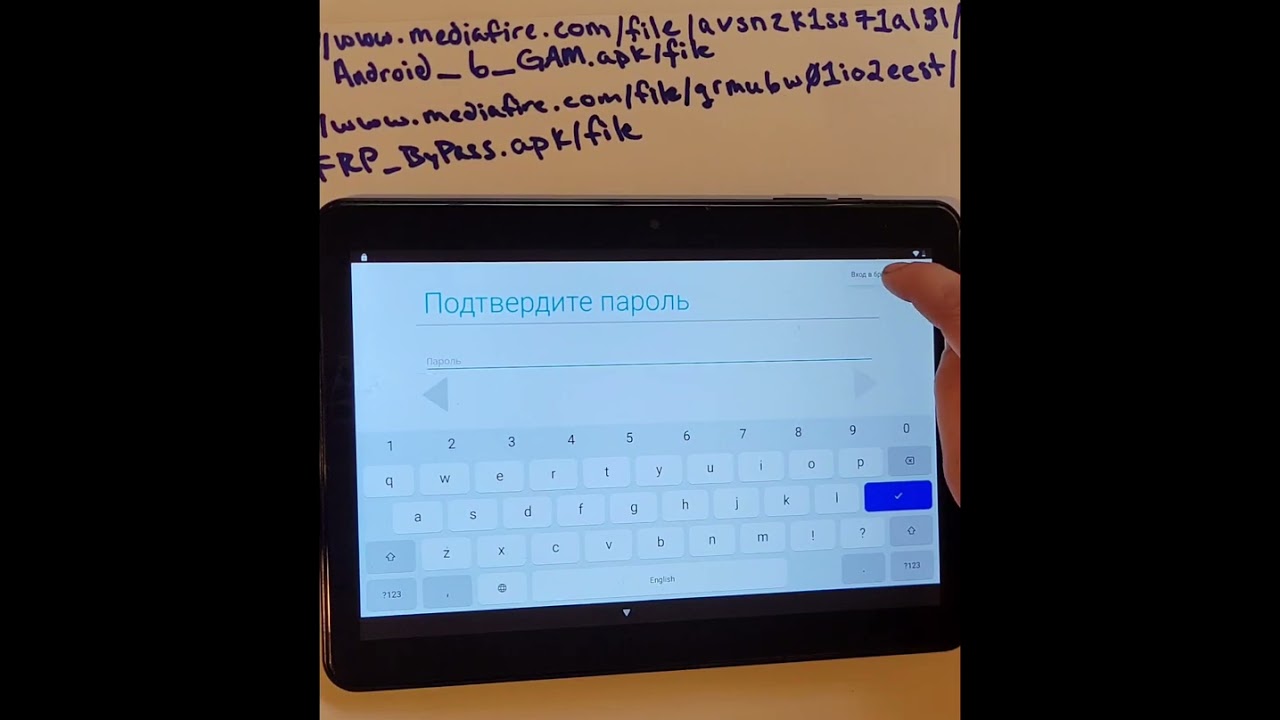 /www.mediafire.com/file/avsn2k1ss71al31/
Android_6_GAM.apk/file
/www.mediafire.com/file/grmu6w01io2eest/
FRP_ByPass.apk/file
Вход в
Подтвердите пароль
Пароль
1 2 3 4 5 6 7 8 9 0
q w e r t y u i o p
a s d f g h j k l
z x c v b n m ! ?
?123 , English . ?123